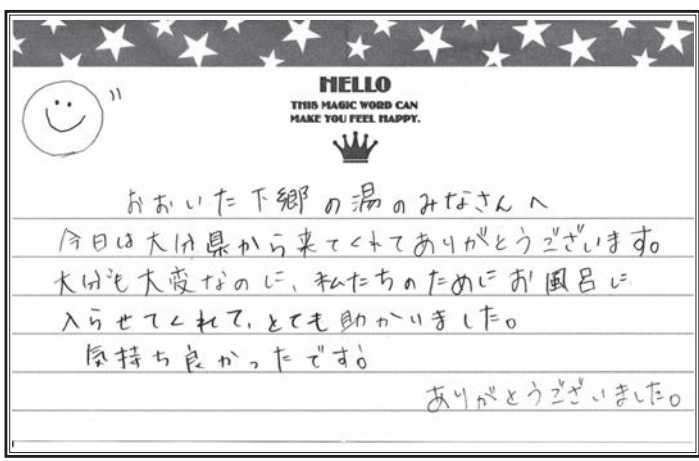 HELLO
THIS MAGIC WORD CAN
MAKE YOU FEEL HAPPY.
おおいた下郷の湯のみなさんへ
今日は大分県から来てくれてありがとうございます。
大分も大変なのに、私たちのためにお風呂に
入らせてくれて、とても助かりました。
気持ち良かったです。
ありがとうございました。